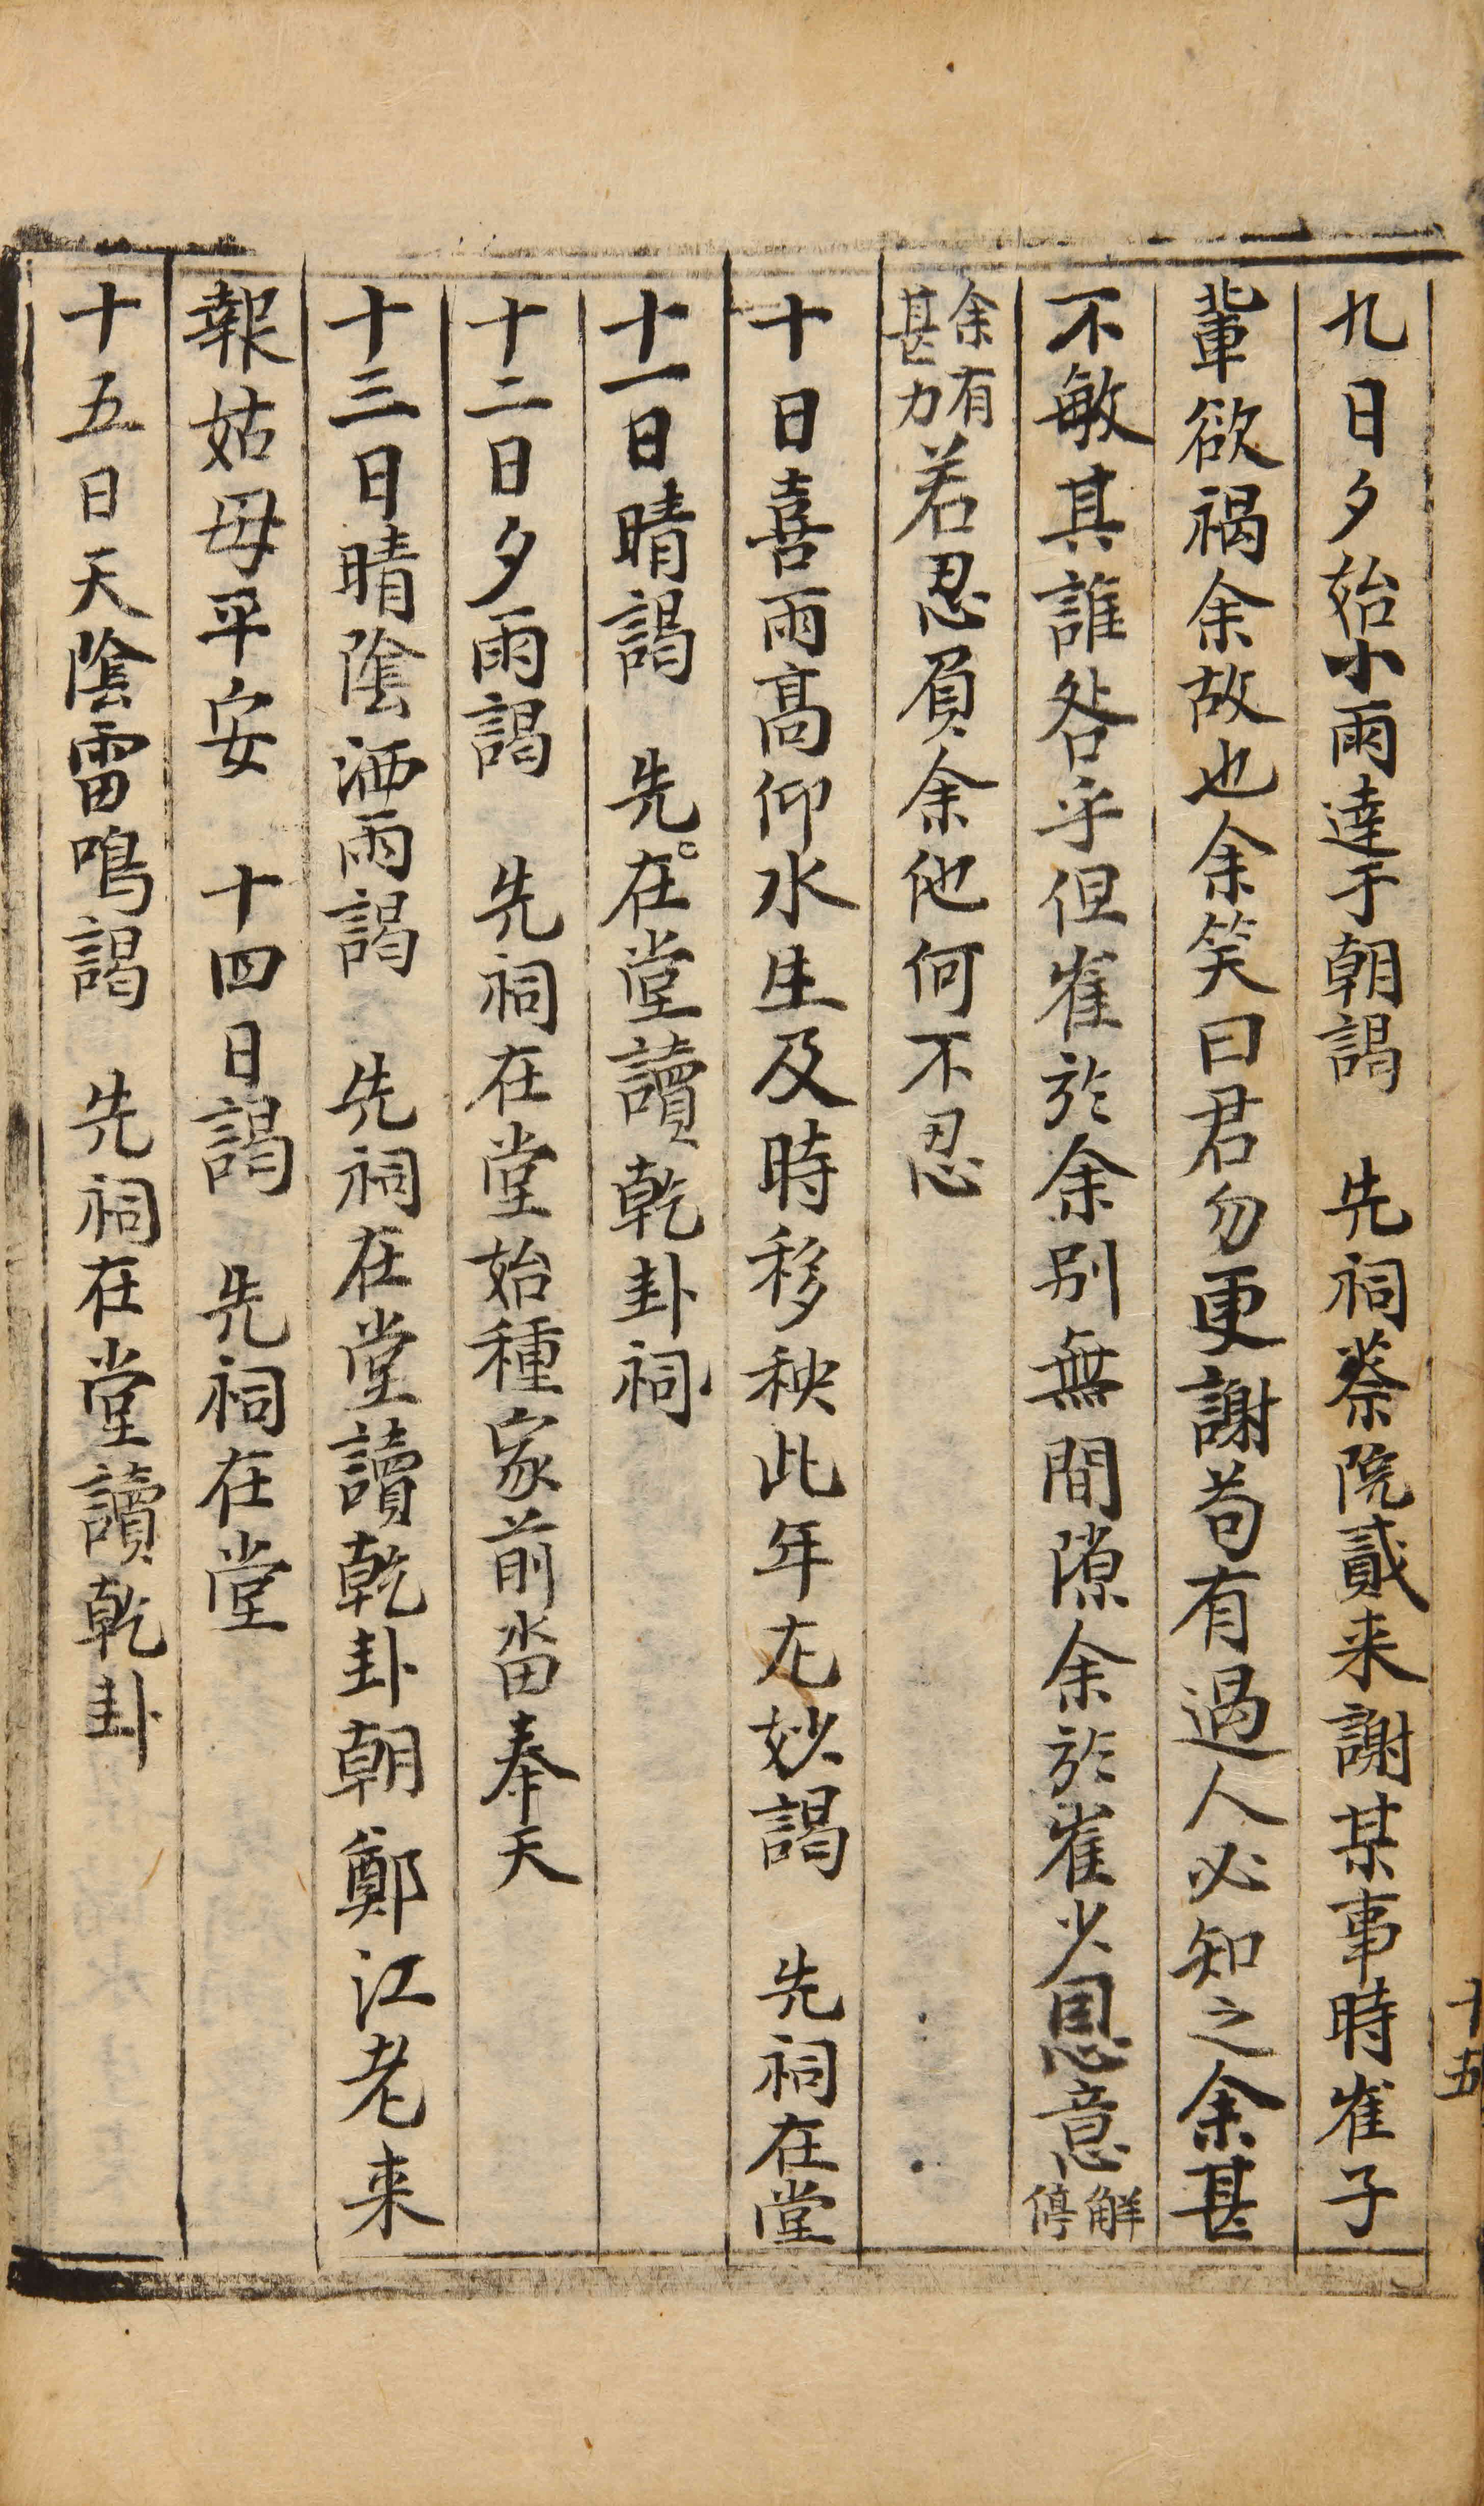 九日夕始小雨達于朝謁　先祠蔡院貳来謝某事時崔子
輩欲禍余故也余笑曰君勿更謝苟有過人必知之余甚
不敏其誰咎乎但崔於余別無間隙余於崔少恩意解停
余有甚力若忍負余他何不忍
十日喜雨高仰水生及時移秧此年尤妙謁　先祠在堂
十一日晴謁　先在堂讀乾卦祠
十二日夕雨謁　先祠在堂始種家前畓奉天
十三日晴陰洒雨謁　先祠在堂讀乾卦朝鄭江老来
報姑母平安　十四日謁　先祠在堂
十五日天陰雷鳴謁　先祠在堂讀乾卦
十五